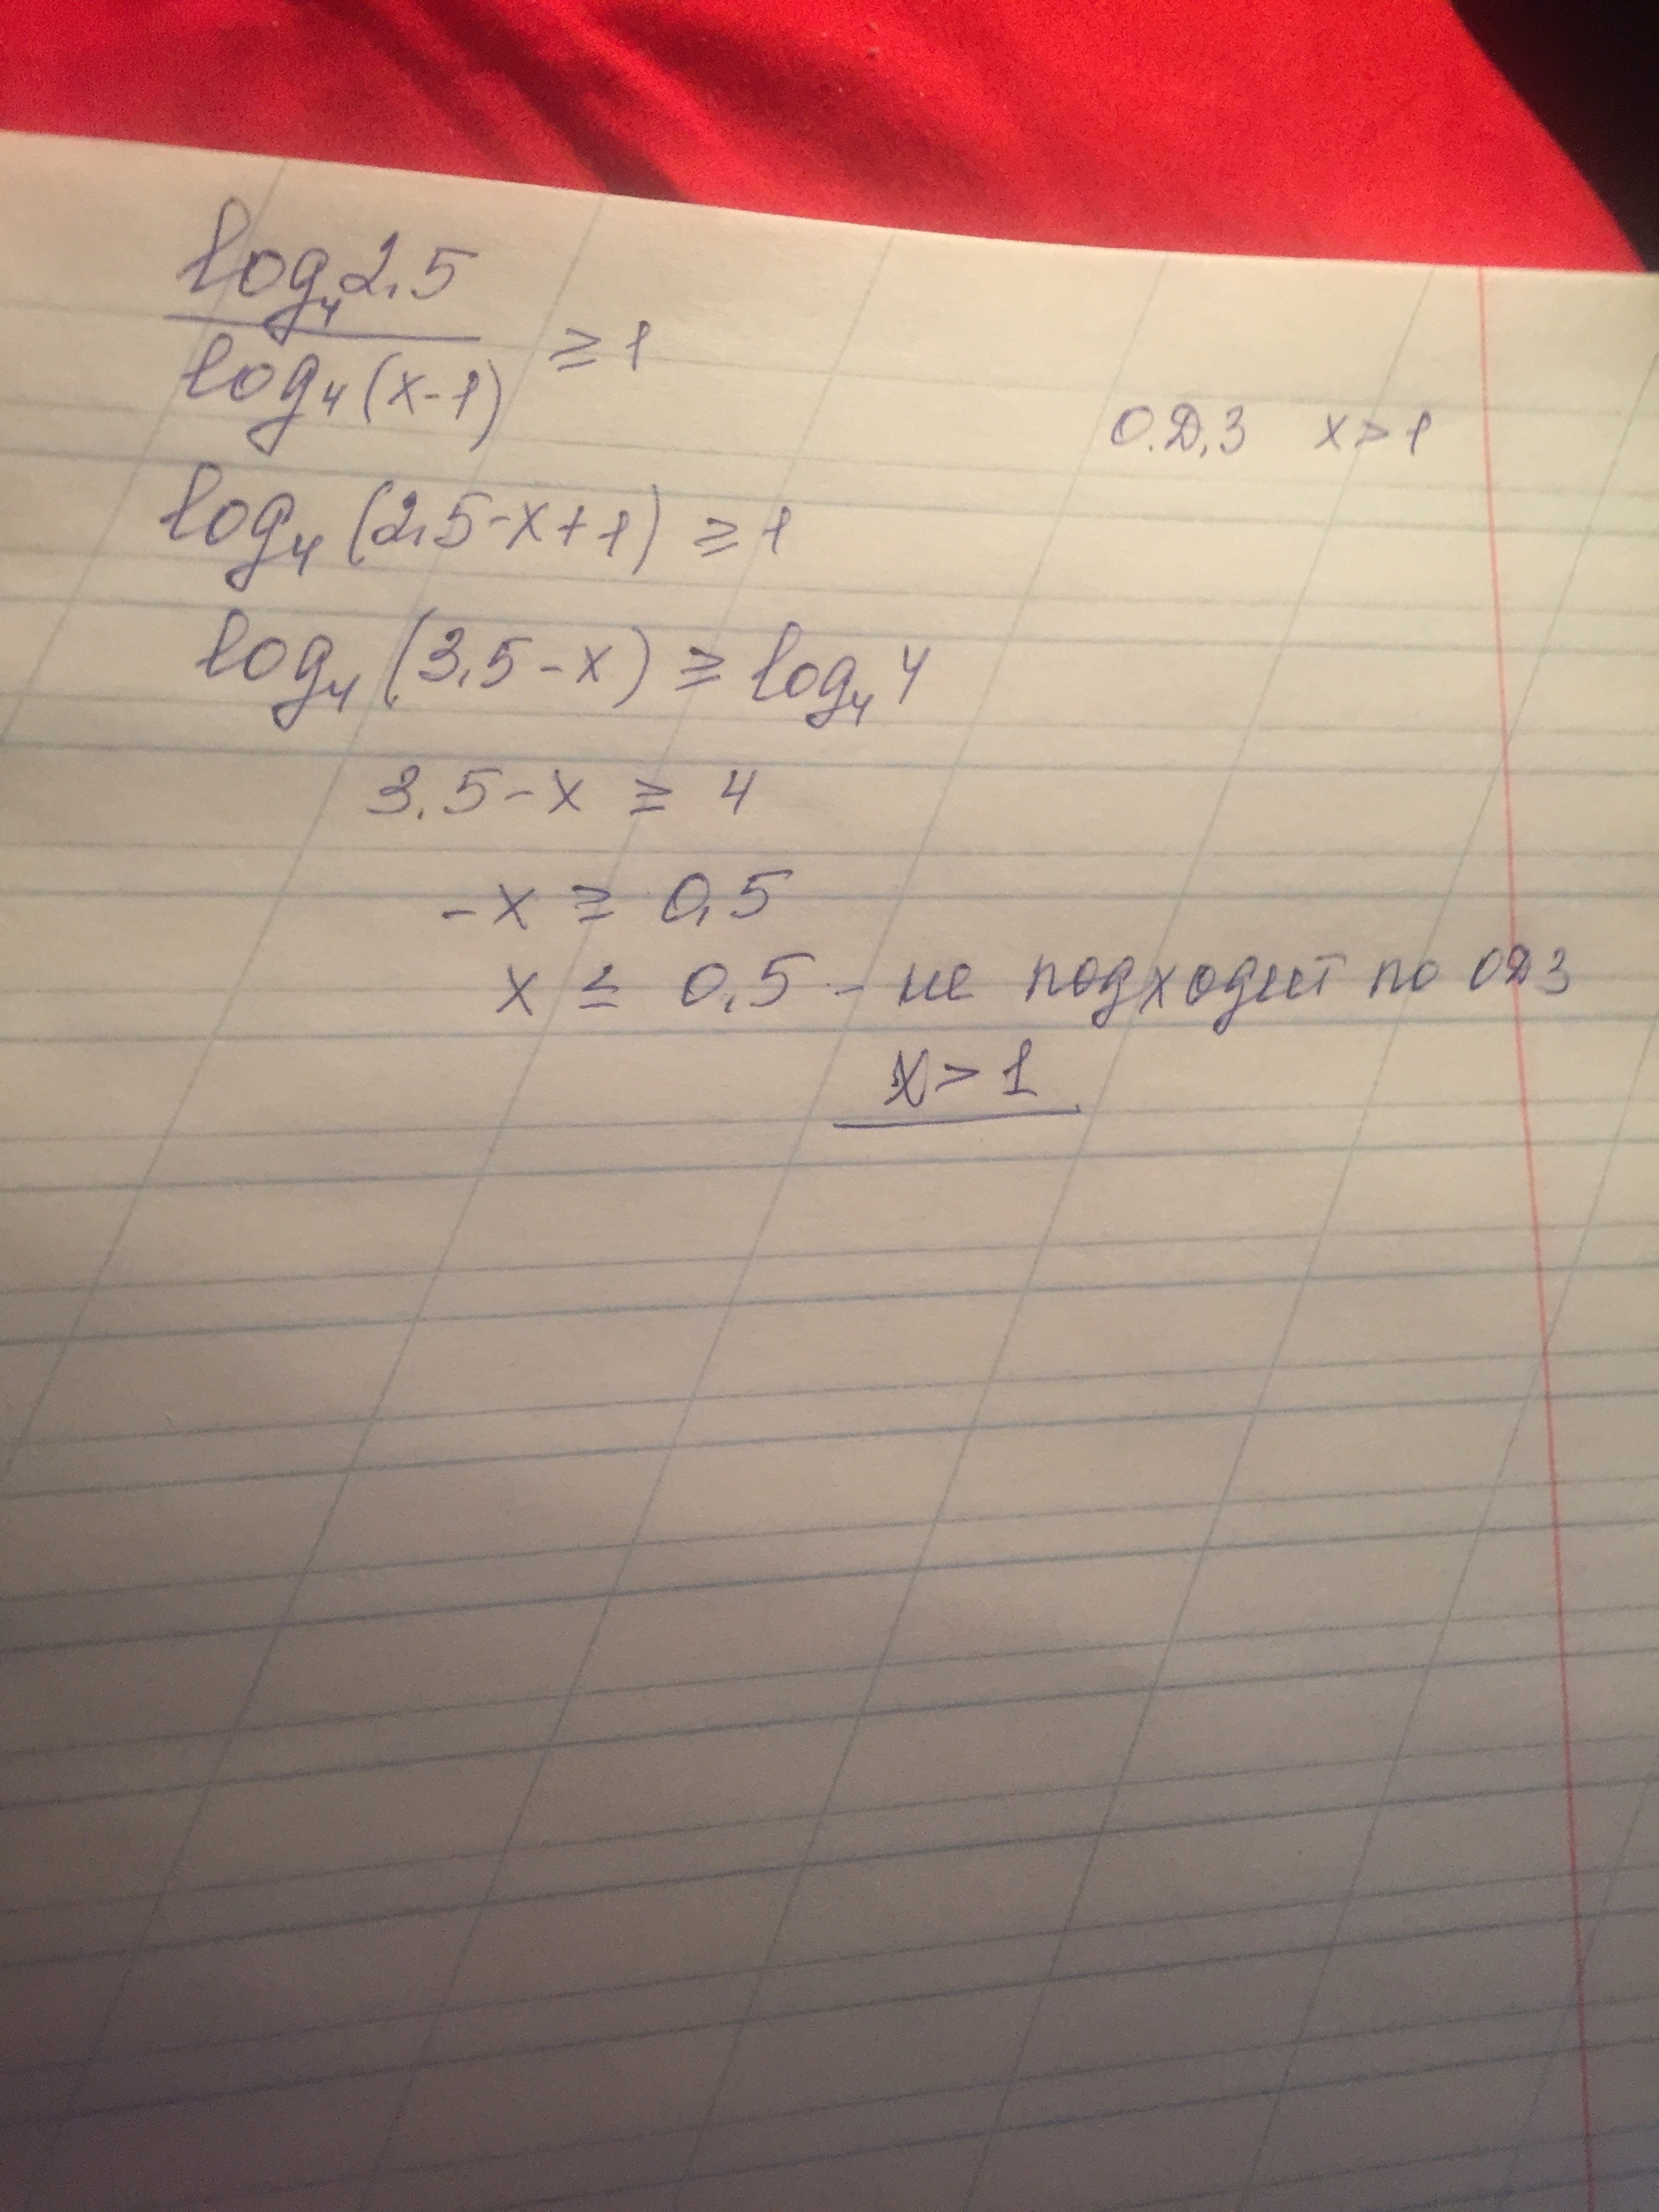 log₄2,5
log₄(x-1) ≥ 1
О.Д.З x > 1
log₄(2,5-x+1) ≥ 1
log₄(3,5-x) ≥ log₄4
3,5-x ≥ 4
-x ≥ 0,5
x ≤ 0,5 - не подходит по ОДЗ
x > 1